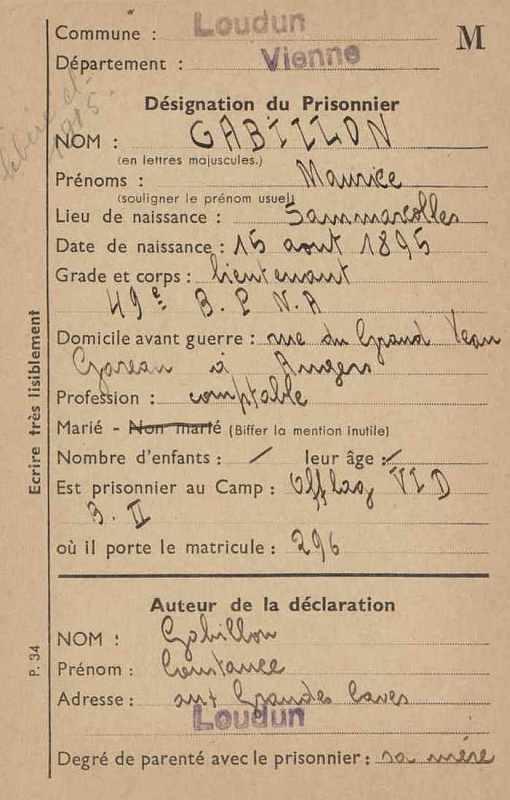 Commune : Loudun
M
Département : Vienne
Désignation du Prisonnier
NOM : GABILLON
(en lettres majuscules.)
Prénoms : Maurice
(souligner le prénom usuel)
Lieu de naissance : Sammarcolles
Date de naissance : 15 aout 1895
Grade et corps : lieutenant
49e B.P N.A
Domicile avant guerre : rue du Grand Jean
à Angers
Profession : comptable
Marié - Non marié (Biffer la mention inutile)
Nombre d'enfants : / leur âge : /
Est prisonnier au Camp : Offlag VI D
3. II
où il porte le matricule : 296
Auteur de la déclaration
NOM : Gabillon
Prénom : Constance
Adresse : aux Grandes Caves
Loudun
Degré de parenté avec le prisonnier : sa mère
Ecrire très lisiblement
P. 34